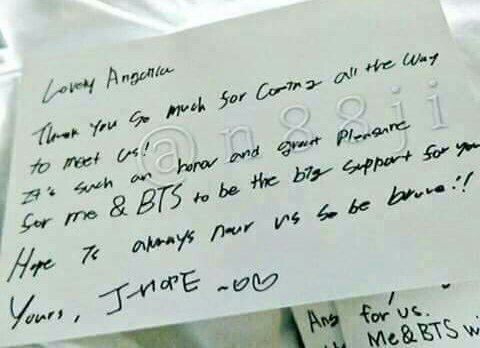 Lovely Angelica
Thank You So much for Coming all the Way
to meet us!
It's such an honor and great Pleasure
for me & BTS to be the big support for you
Hope Is always near us so be brave!!
Yours, J-HOPE ~♡♡
@n88ji
Ang
for us.
Me&BTS wi